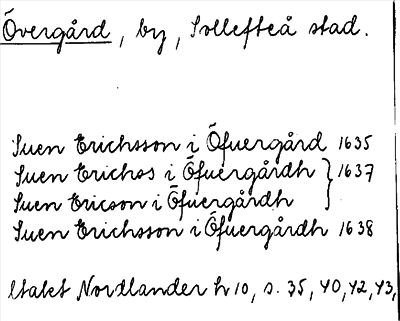 Övergård, by, Sollefteå stad.
Suen Erichsson i Öfuergård 1635
Suen Erichos i Öfuergårdh } 1637
Suen Ericson i Öfuergårdh
Suen Erichsson i Öfuergårdh 1638
Nordlander h 10, s. 35, 40, 42, 43,